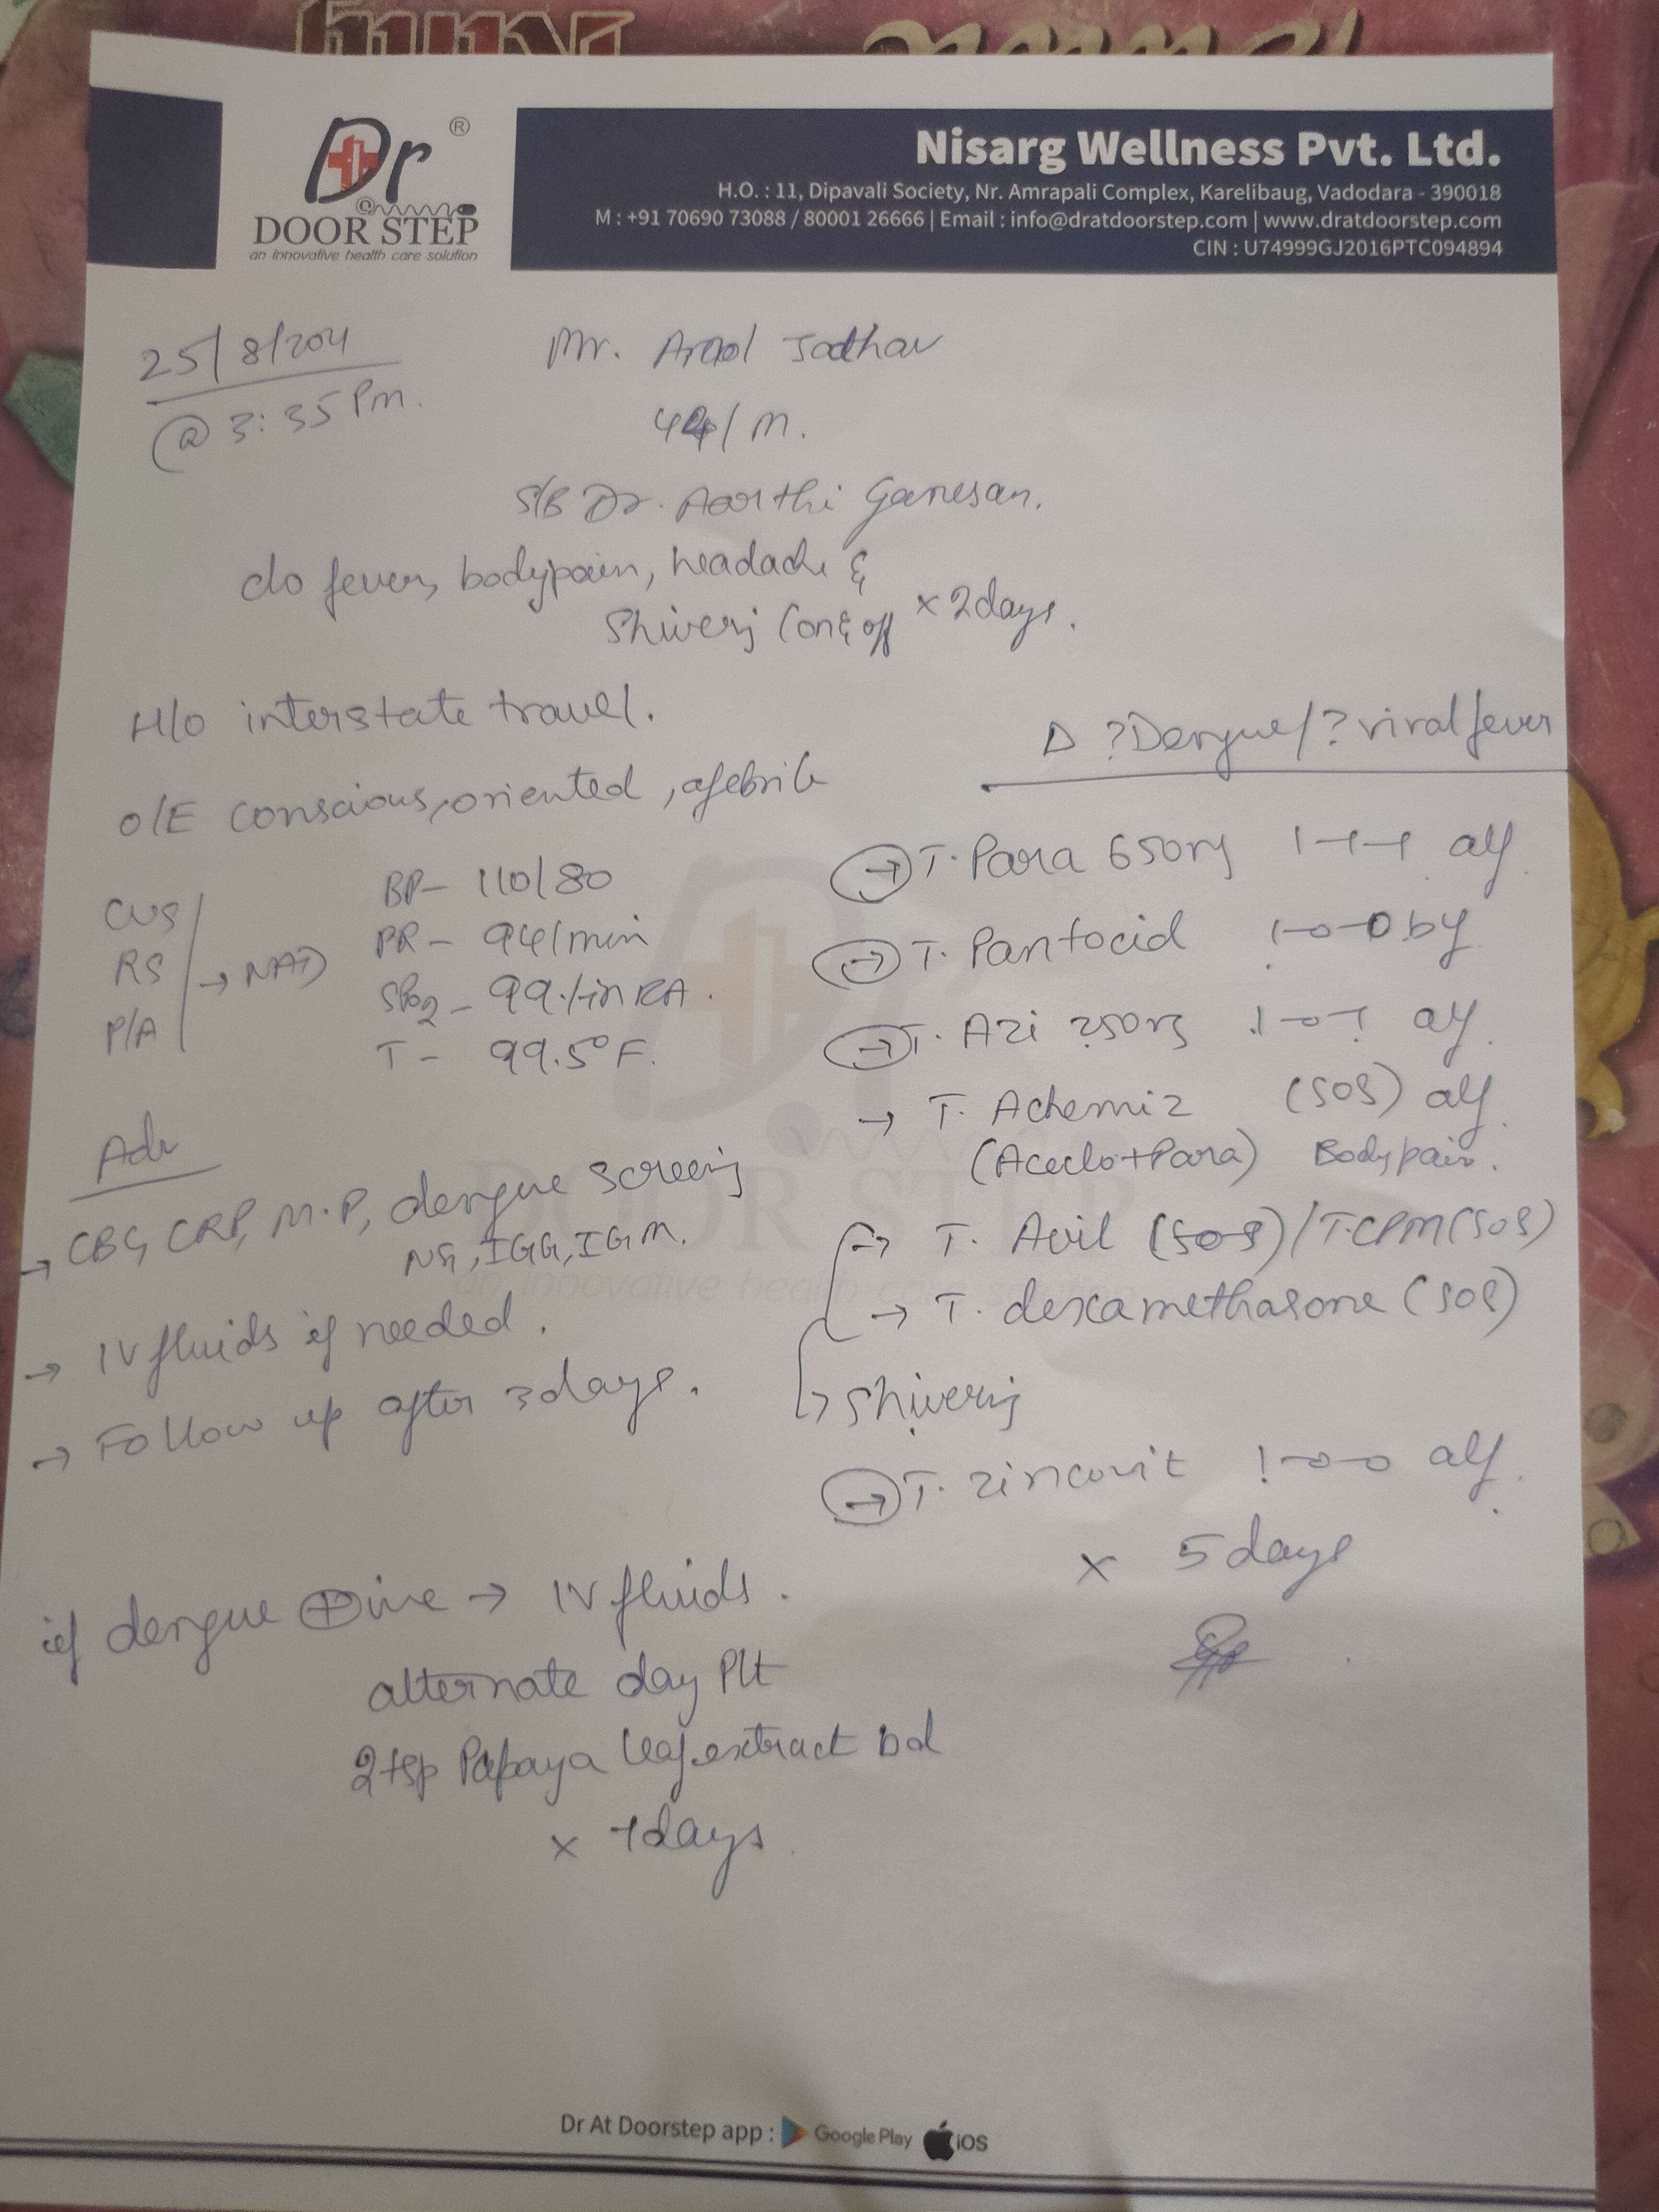 Dr ®
@
DOOR STEP
an innovative health care solution
Nisarg Wellness Pvt. Ltd.
H.O. : 11, Dipavali Society, Nr. Amrapali Complex, Karelibaug, Vadodara - 390018
M : +91 70690 73088 / 80001 26666 | Email : info@dratdoorstep.com | www.dratdoorstep.com
CIN : U74999GJ2016PTC094894
25/8/
@ 3:35 Pm.
Mr. Jadhav
44/M.
S/B Dr. Aarthi Ganesan.
c/o fever, bodypain, headache &
Shivering (on & off × 2days.
H/o interstate travel.
O/E conscious, oriented, afebrile
CVS
RS → NAD
P/A
BP - 110/80
PR - 94/min
SPO2 - 99% in RA.
T - 99.5°F.
Adv
→ CBC, CRP, M.P, dengue screening
NS1, IGG, IGM.
→ IV fluids if needed.
→ Follow up after 3days.
D ?Dengue/?viral fever
→ T. Para 650mg 1-1-1 a/f
→ T. Pantocid 1-0-0 b/f
→ T. Azi 250mg 1-0-1 a/f
→ T. (SOS) a/f
(Aceclo+Para) Bodypain.
→ T. Avil (SOS)/T.CPM(SOS)
→ T. dexamethasone (SOS)
→ Shivering
→ T. Zincovit 1-0-0 a/f.
× 5days
if dengue ⊕ive → IV fluids.
alternate day Plt
2tsp Papaya leaf extract bd
× 7days.
Dr At Doorstep app : Google Play iOS